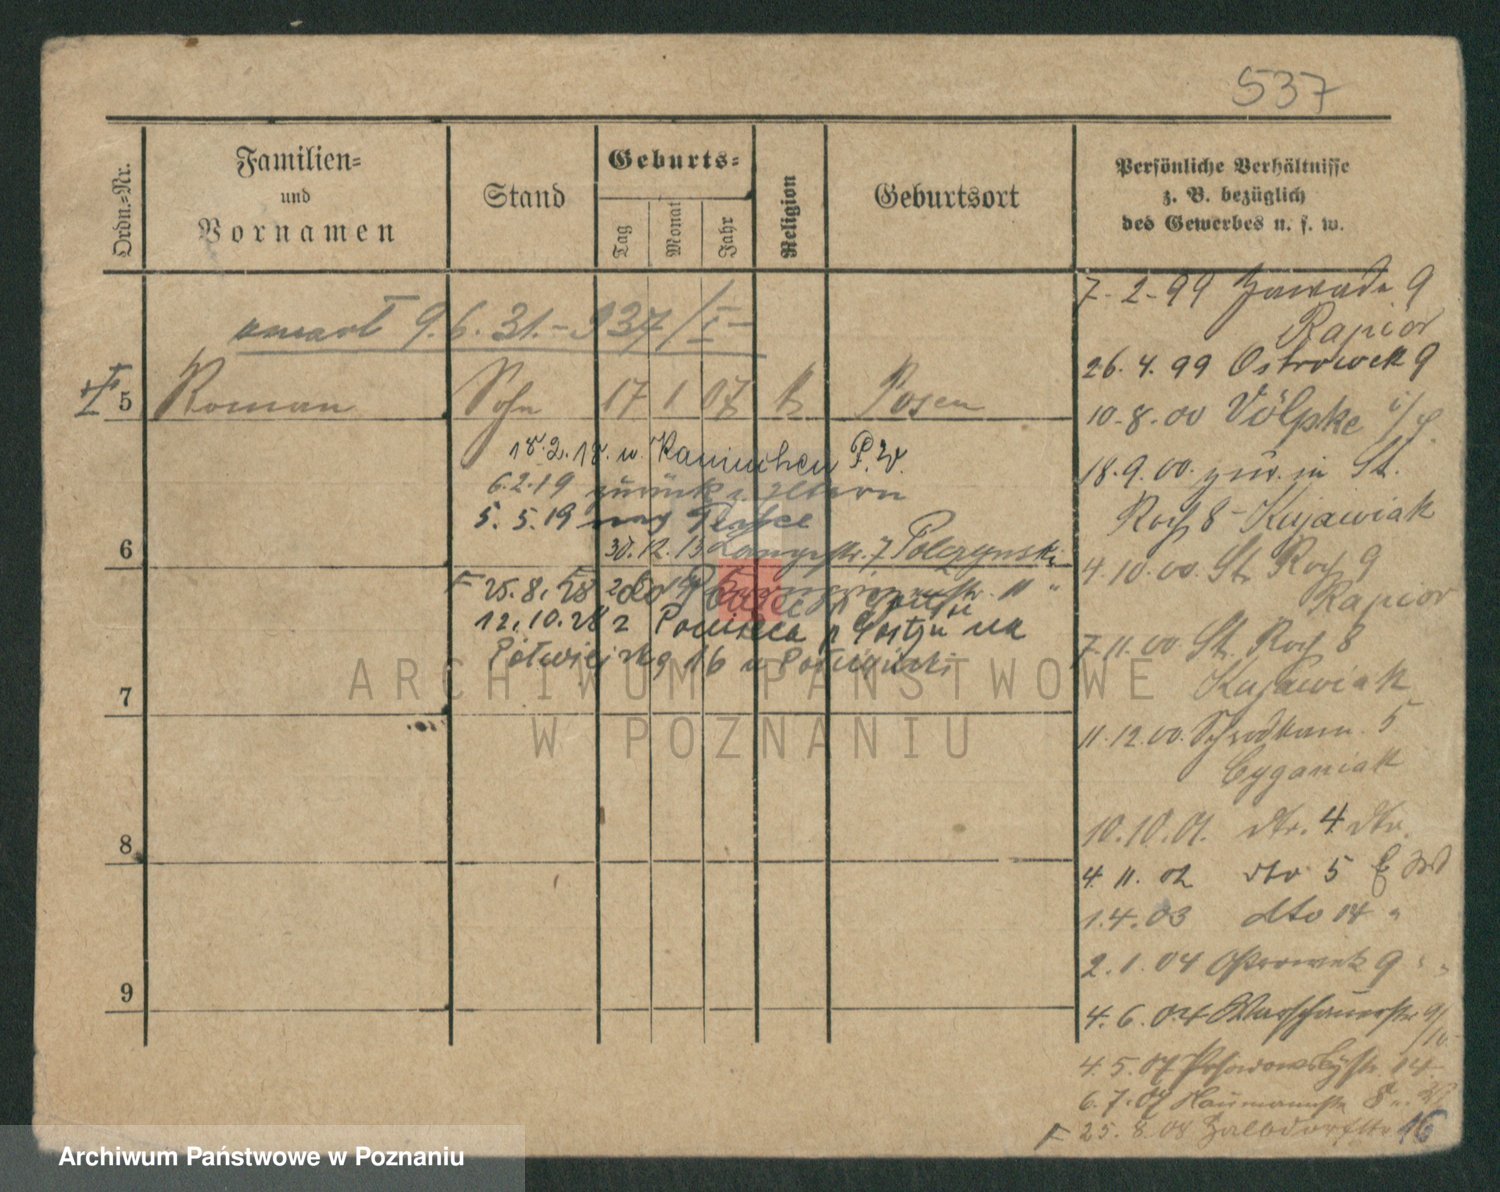 537
Ordn.-Nr.
Familien-
und
Vornamen
Stand
Geburts-
Tag
Monat
Jahr
Religion
Geburtsort
Persönliche Verhältnisse
z. B. bezüglich
des Gewerbes u. s. w.
9.6.31.- 937/I-
5 Roman Sohn 17 1 07 k Posen
18.2.18. n. Kaninchen P.W.
6.2.19 zurück z. Eltern
5.5.19
6
30.12.13 Langestr. 7 Polczynski
25.8.28
12.10.28 z na
Półwiejską 16
7
8
9
7-2-99 Zawade 9
Rapior
26.4.99 Ostrowek 9
10.8.00 Völpke
18.9.00. zur. in St.
Roch 8 - Kujawiak
4.10.00. St. Roch 9
Rapior
7.11.00 St. Roch 8
Kujawiak
11.12.00. 5
Cyganiak
10.10.01. dto. 4 dto.
4.11.02 dto 5
1.4.03 dto 14 "
2.1.04 Ostrowek 9 " "
4.6.04 Warschauerstr 9/10
4.5.07 Posadowskystr. 14
6.7.07 Naumannstr 8
25.8.08 16
ARCHIWUM PAŃSTWOWE
W POZNANIU
Archiwum Państwowe w Poznaniu